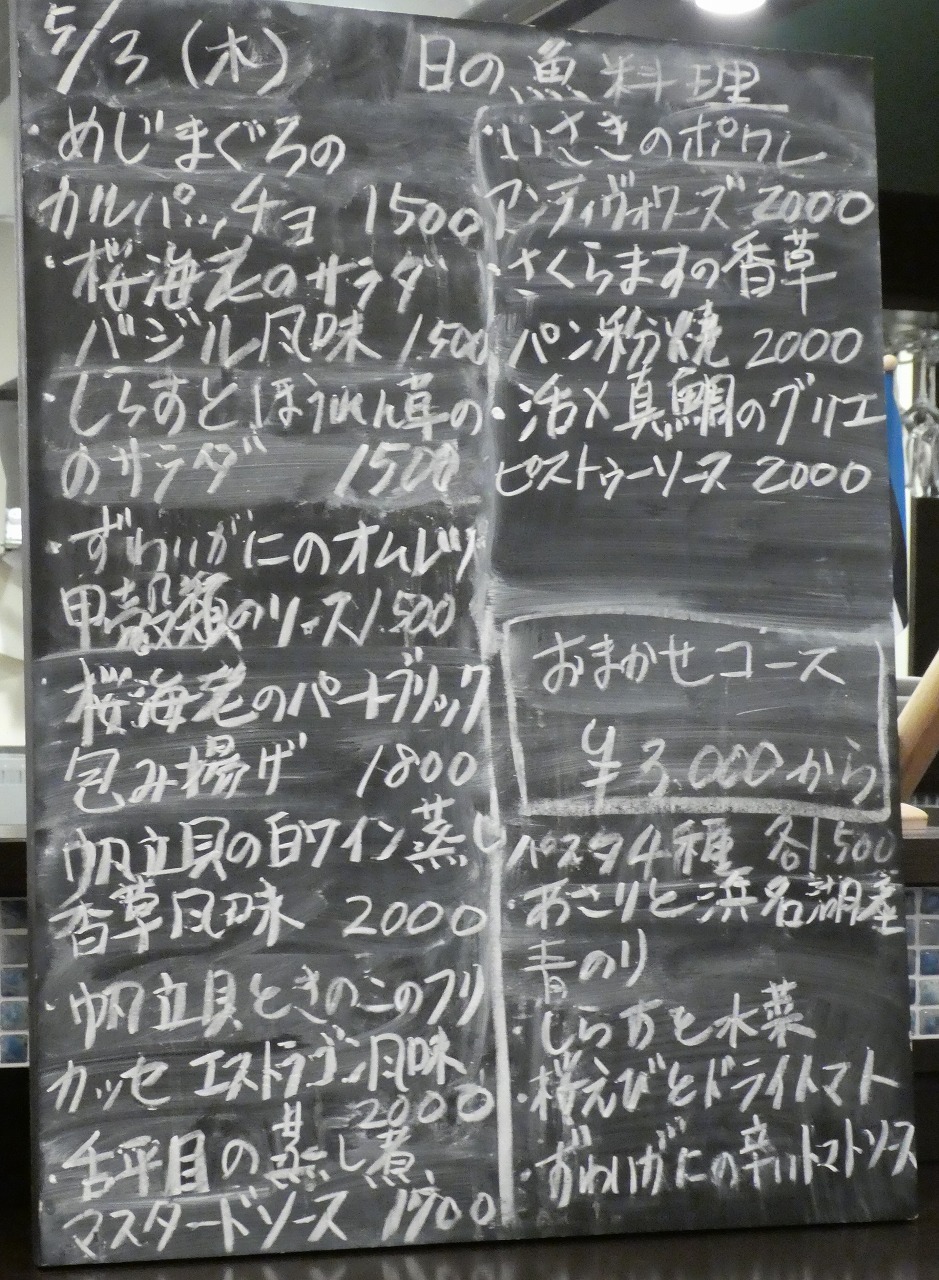 5/3(木) 日の魚料理
・めじまぐろの
カルパッチョ 1500
・桜海老のサラダ
バジル風味 1.500
・しらすとほうれん草の
のサラダ 1500
・ずわいがにのオムレツ
甲殻類のソース 1.500
桜海老のパートブリック
包み揚げ 1800
帆立貝の白ワイン蒸し
香草風味 2000
・帆立貝ときのこのフリ
カッセ エストラゴン風味
2000
・舌平目の蒸し煮
マスタードソース 1700
・いさきのポワレ
アンティヴォワーズ 2000
・さくらますの香草
パン粉焼 2000
・活〆真鯛のグリエ
ピストゥーソース 2000
おまかせコース
¥3.000から
パスタ4種 各1.500
・あさりと浜名湖産
青のり
・しらすと水菜
・桜えびとドライトマト
・ずわいがにの辛いトマトソース